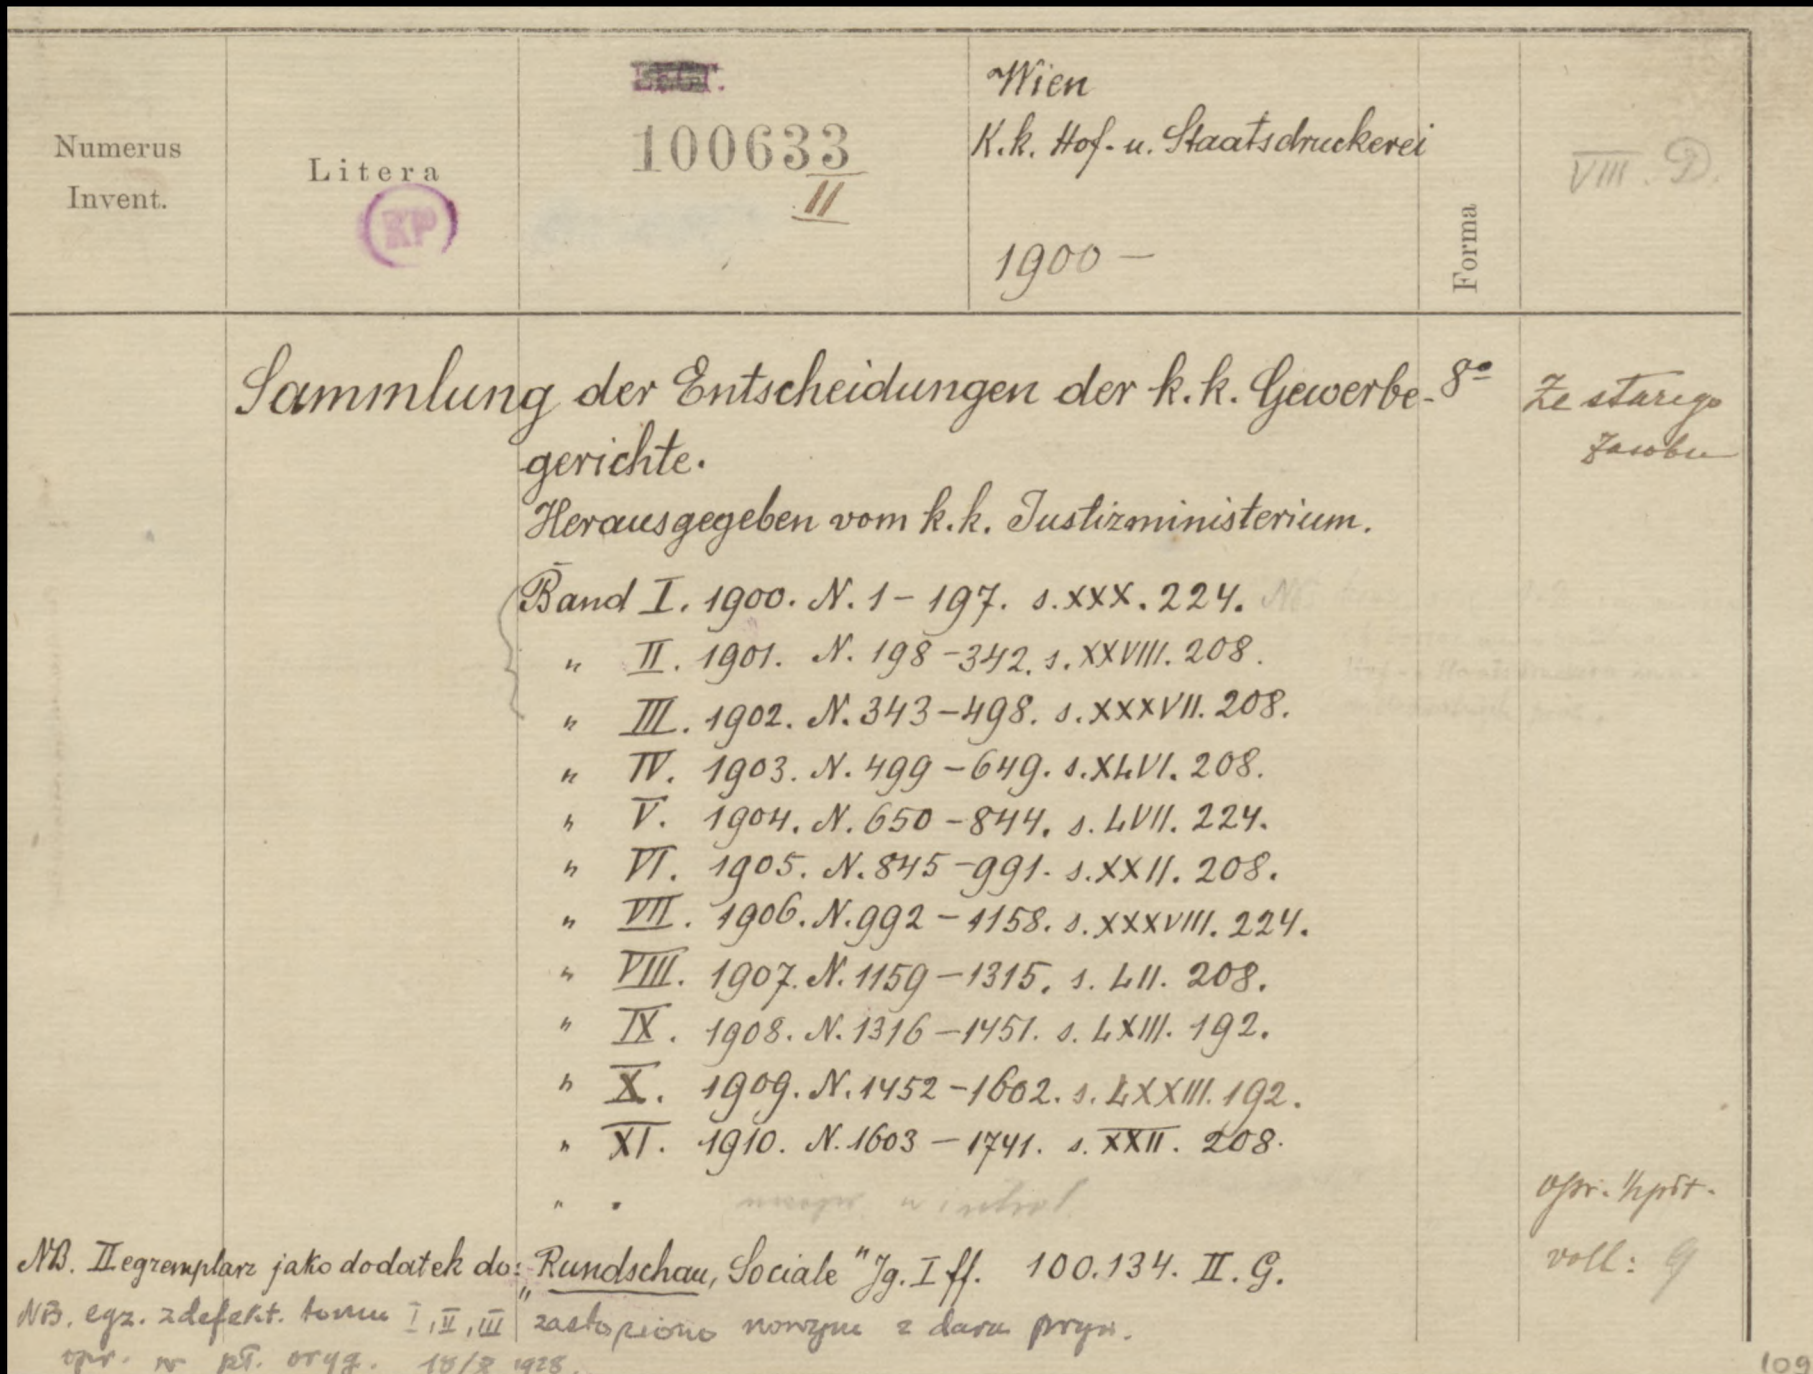 Numerus
Invent.
Litera
KP
100633
II
Wien
K. k. Hof- u. Staatsdruckerei
1900 –
Forma
VIII. D.
Sammlung der Entscheidungen der k. k. Gewerbe-
gerichte.
8º
Ze starego
Zasobu
Herausgegeben vom k. k. Justizministerium.
Band I. 1900. N. 1 – 197. s. XXX. 224.
„ II. 1901. N. 198 – 342. s. XXVIII. 208.
„ III. 1902. N. 343 – 498. s. XXXVII. 208.
„ IV. 1903. N. 499 – 649. s. XLVI. 208.
„ V. 1904. N. 650 – 844. s. LVII. 224.
„ VI. 1905. N. 845 – 991. s. XXII. 208.
„ VII. 1906. N. 992 – 1158. s. XXXVIII. 224.
„ VIII. 1907. N. 1159 – 1315. s. LII. 208.
„ IX. 1908. N. 1316 – 1451. s. LXIII. 192.
„ X. 1909. N. 1452 – 1602. s. LXXIII. 192.
„ XI. 1910. N. 1603 – 1741. s. XXII. 208.
„ .
opr. ½ płt.
voll: 9
NB. II egzemplarz jako dodatek do: „Rundschau, Sociale" Jg. I ff. 100.134. II. G.
NB. egz. zdefekt. tomu I, II, III zastąpiono nowym z daru pryw.
opr. w pł. oryg. 1928.
109